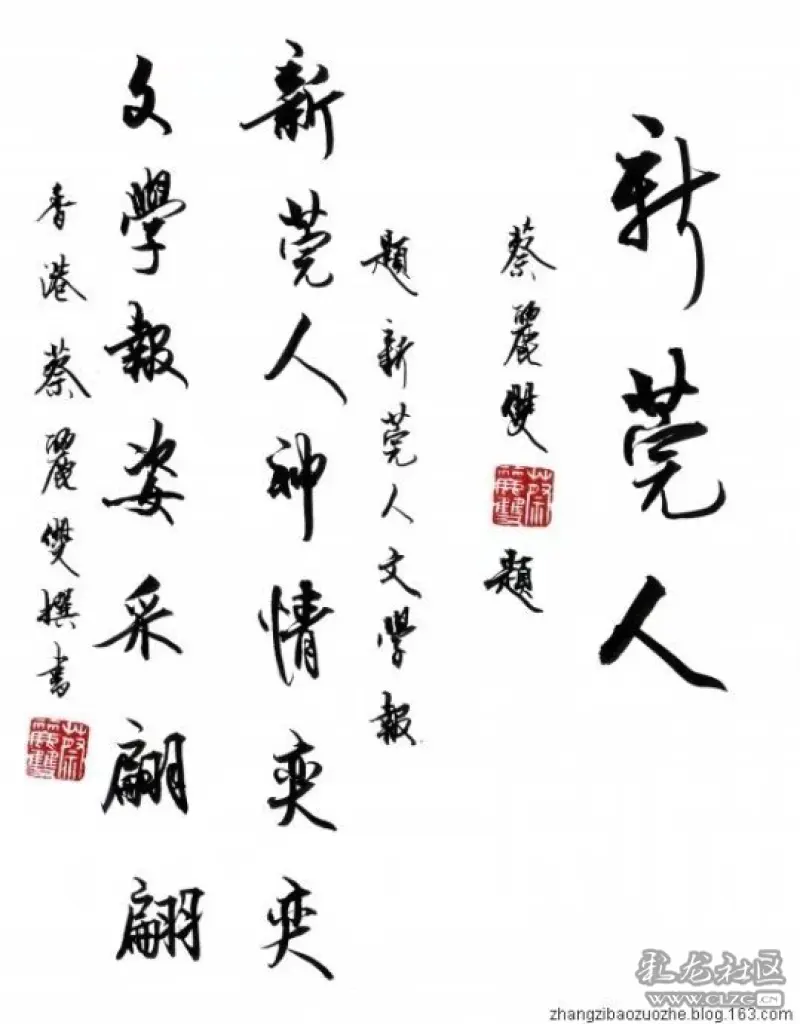 新莞人
蔡麗雙
蔡麗雙
題
題新莞人文學報
新莞人神情奕奕
文學報姿采翩翩
香港蔡麗雙撰書
蔡麗雙
乳龙社区
WWW.CLZG.CN
zhangzibaozuozhe.blog.163.com